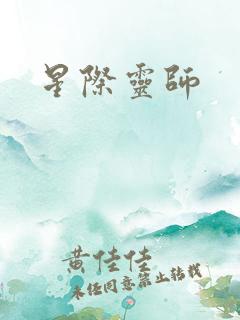 星際靈師
黃佳佳
未经同意禁止转载